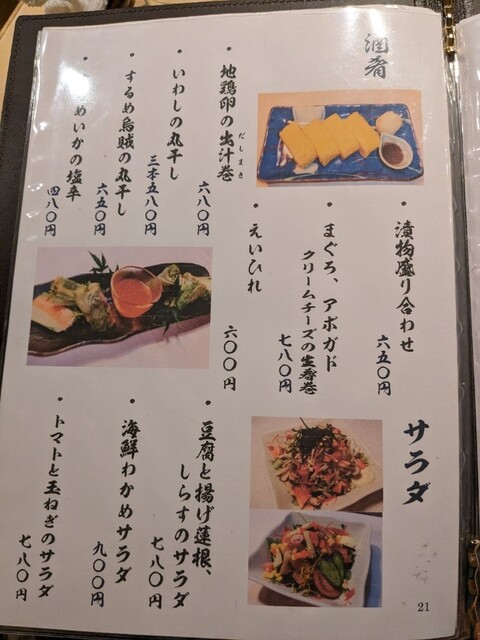 酒肴
・地鶏卵の出汁巻
だしまき
六八〇円
・いわしの丸干し
三本五八〇円
・するめ烏賊の丸干し
六五〇円
めいかの塩辛
四八〇円
・漬物盛り合わせ
六五〇円
・まぐろ、アボガド
クリームチーズの生春巻
七八〇円
・えいひれ
六〇〇円
サラダ
・豆腐と揚げ蓮根、
しらすのサラダ
七八〇円
・海鮮わかめサラダ
九〇〇円
・トマトと玉ねぎのサラダ
七八〇円
21